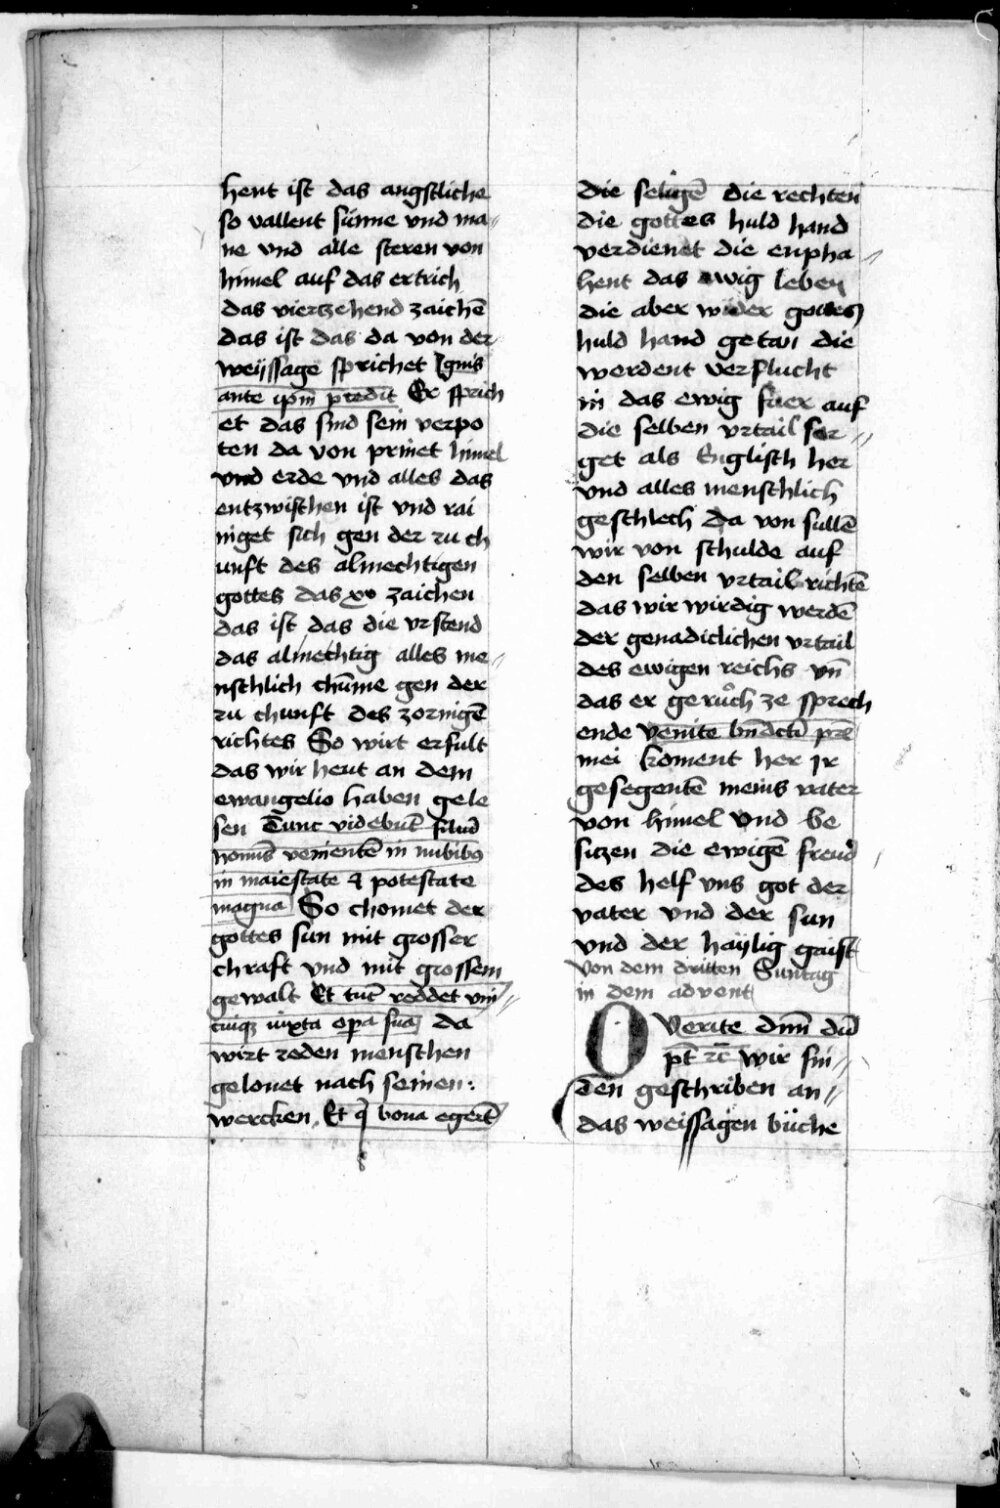 hent ist das angstliche
so vallent sunne vnd ma⸗
ne vnd alle steren von
himel auf das ertrich
das vierzehend zaichē
das ist das da von der
weyssage sprichet Ignis
ante ipm̄ p̄cedit Er sprich
et das sind sein verpo
ten da von prinet himel
vnd erde vnd alles das
entzwischen ist vnd rai
niget sich gen der zu ch
unft des almechtigen
gottes das xv zaichen
das ist das die vrstend
das almechtig alles me⸗
nschlich chūme gen der
zu chunft des zornigē
richtes So wirt erfult
das wir heut an dem
ewangelio haben gele
sen Tunc videbūt filiū
hominis venientē in nubibꝫ
in maiestate ⁊ potestate
magna So chomet der
gottes sun mit grosser
chraft vnd mit grossem
gewalt Et tūc reddet vni⸗
cuiqꝫ iuxta opa sua da
wirt reden menschen
gelonet nach seinen:
wercken. Et q̄ bona egert̄
die seligē die rechten
die gottes huld hand
verdienet die enpha⸗
hent das ewig leben
die aber wider gottes
huld hand getan die
werdent verflucht
in das ewig fuer auf
die selben vrtail sor⸗
get als Englisch her
vnd alles menschlich
geschlech da von sullē
wir von schulde auf
den selben vrtail richtē
das wir wirdig werdē
der genadiclichen vrtail
des ewigen reichs vn̄
das er gerůch ze sprech
ende Venite bn̄dcti pr̄s
mei koment her Ir
gesegentē meins vater
von himel vnd be
siczen die ewigē freud
des helf vns got der
vater vnd der sun
vnd der haÿlig gaist
Von dem dritten Suntag
in dem advent
O Verite dm̄ dū
pt̄ ⁊c̄ wir fin⸗
den geschriben an⸗
das weissagen bůche